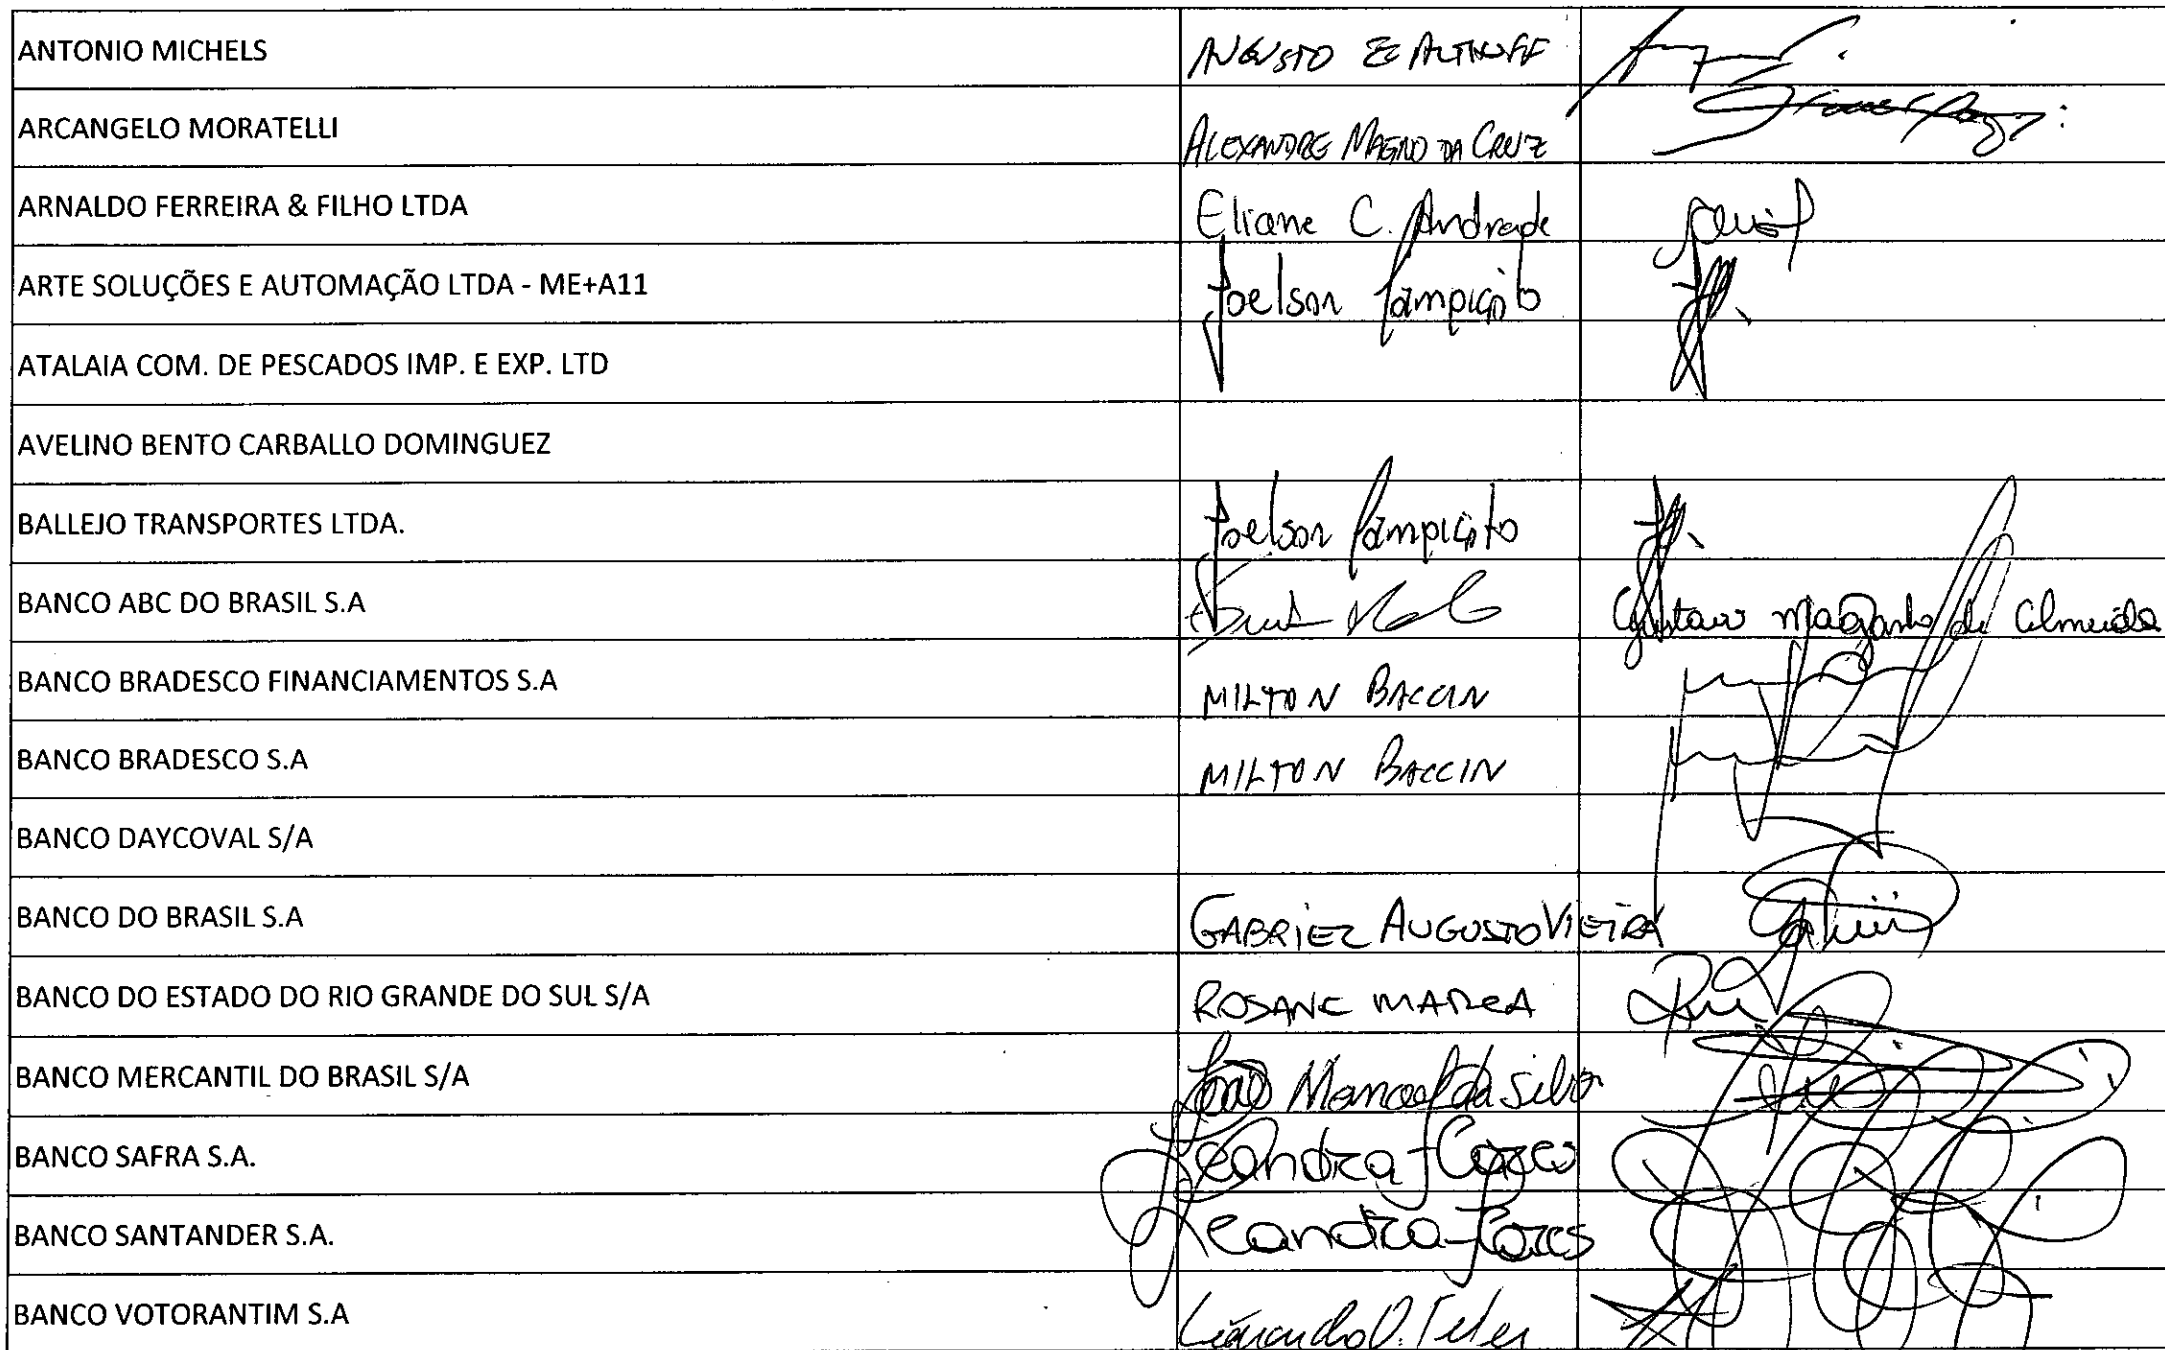 ANTONIO MICHELS AUGUSTO ALTHOFF
ARCANGELO MORATELLI ALEXANDRE MAGNO DA CRUZ
ARNALDO FERREIRA & FILHO LTDA Eliane C. Andrade
ARTE SOLUÇÕES E AUTOMAÇÃO LTDA - ME+A11 Joelson
ATALAIA COM. DE PESCADOS IMP. E EXP. LTD
AVELINO BENTO CARBALLO DOMINGUEZ
BALLEJO TRANSPORTES LTDA. Joelson
BANCO ABC DO BRASIL S.A Gustavo de Almeida
BANCO BRADESCO FINANCIAMENTOS S.A MILTON BACCIN
BANCO BRADESCO S.A MILTON BACCIN
BANCO DAYCOVAL S/A
BANCO DO BRASIL S.A GABRIEL AUGUSTO VIEIRA
BANCO DO ESTADO DO RIO GRANDE DO SUL S/A ROSANE
BANCO MERCANTIL DO BRASIL S/A João Manoel da Silva
BANCO SAFRA S.A. Leandra
BANCO SANTANDER S.A. Leandra
BANCO VOTORANTIM S.A